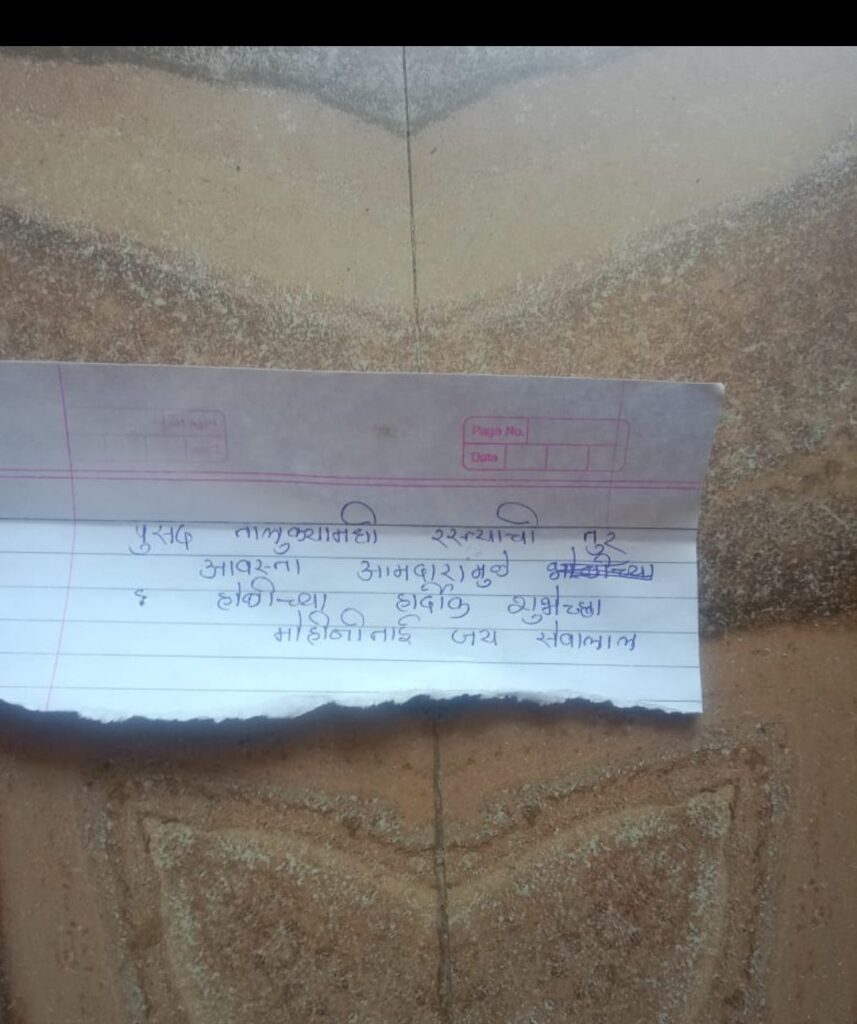 Page No.
Date
पुसद तालुक्यामधी रस्त्याची तुर
आवस्ता आमदारामुळे
६ होळीच्या हार्दीक शुभेच्छा
मोहीनीताई जय सेवालाल